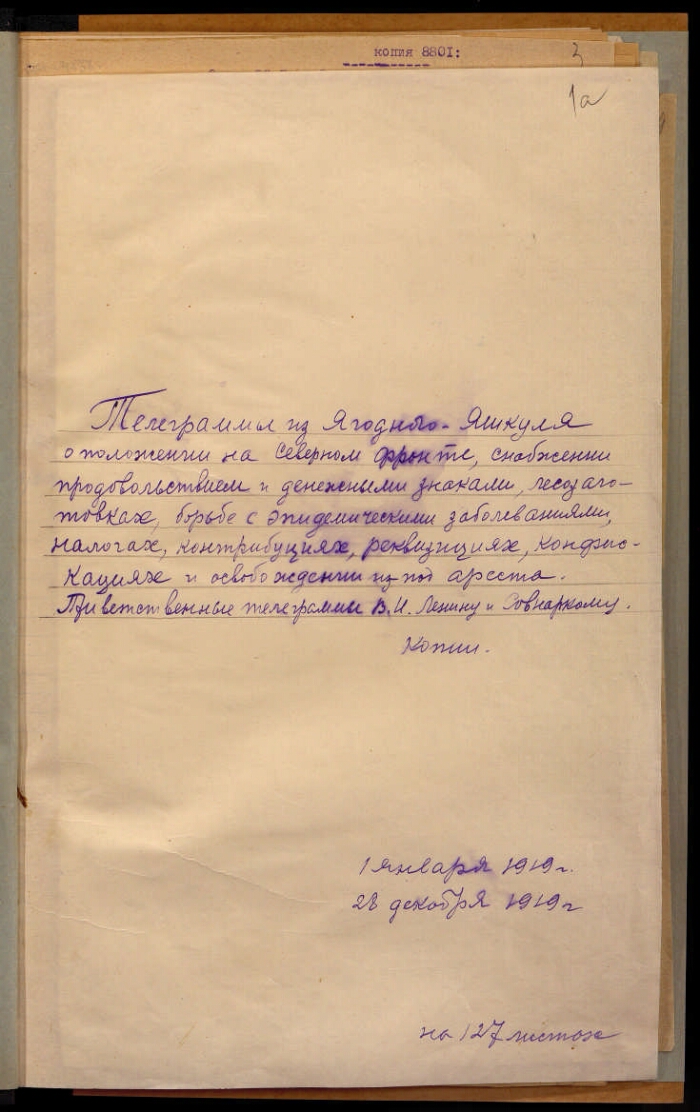 копия 8801:
3
1а
Телеграммы из Ягодного-Яшкуля
о положении на Северном фронте, снабжении
продовольствием и денежными знаками, лесозаго-
товках, борьбе с эпидемическими заболеваниями,
налогах, контрибуциях, реквизициях, конфис-
кациях и освобождении из под ареста.
Приветственные телеграммы В.И. Ленину и Совнаркому.
Копии.
1 января 1919 г.
28 декабря 1919 г
на 127 листах